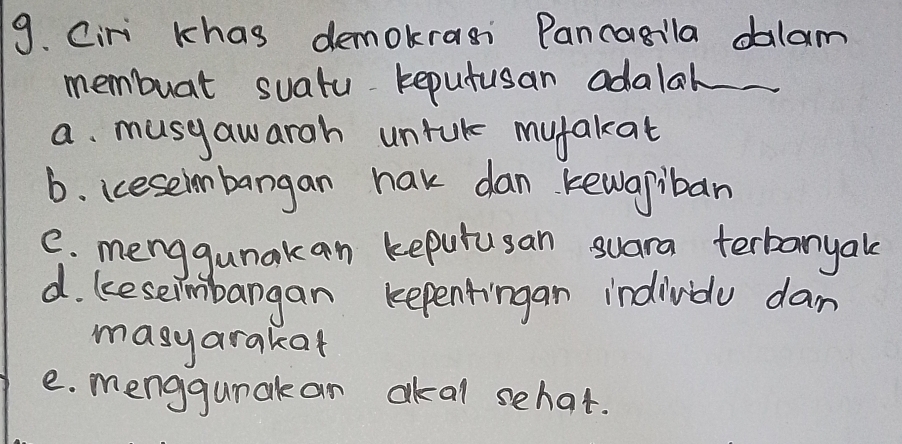 9. Ciri khas demokrasi Pancasila dalam
membuat suatu keputusan adalah
a. musyawarah untuk mufakat
b. keseimbangan hak dan kewajiban
c. menggunakan keputusan suara terbanyak
d. keseimbangan kepentingan individu dan
masyarakat
e. menggunakan akal sehat.